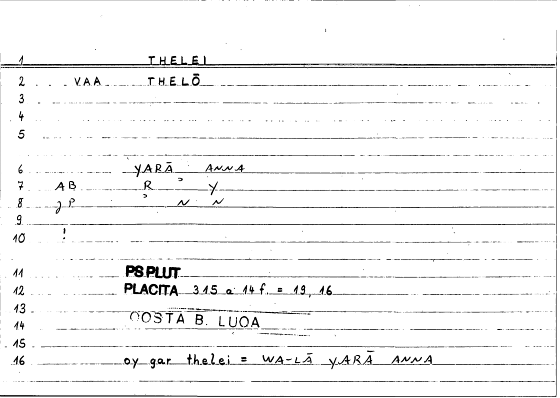 1 THELEI
2 VAA THELŌ
3
4
5
6 YARĀ ANNA
7 AB R ʾ Y
8 JP ʾ N N
9
10 !
11 PS PLUT
12 PLACITA 315 a 14 f. = 19, 16
13
14 COSTA B. LUOA
15
16 oy gar thelei = WA-LĀ YARĀ ANNA